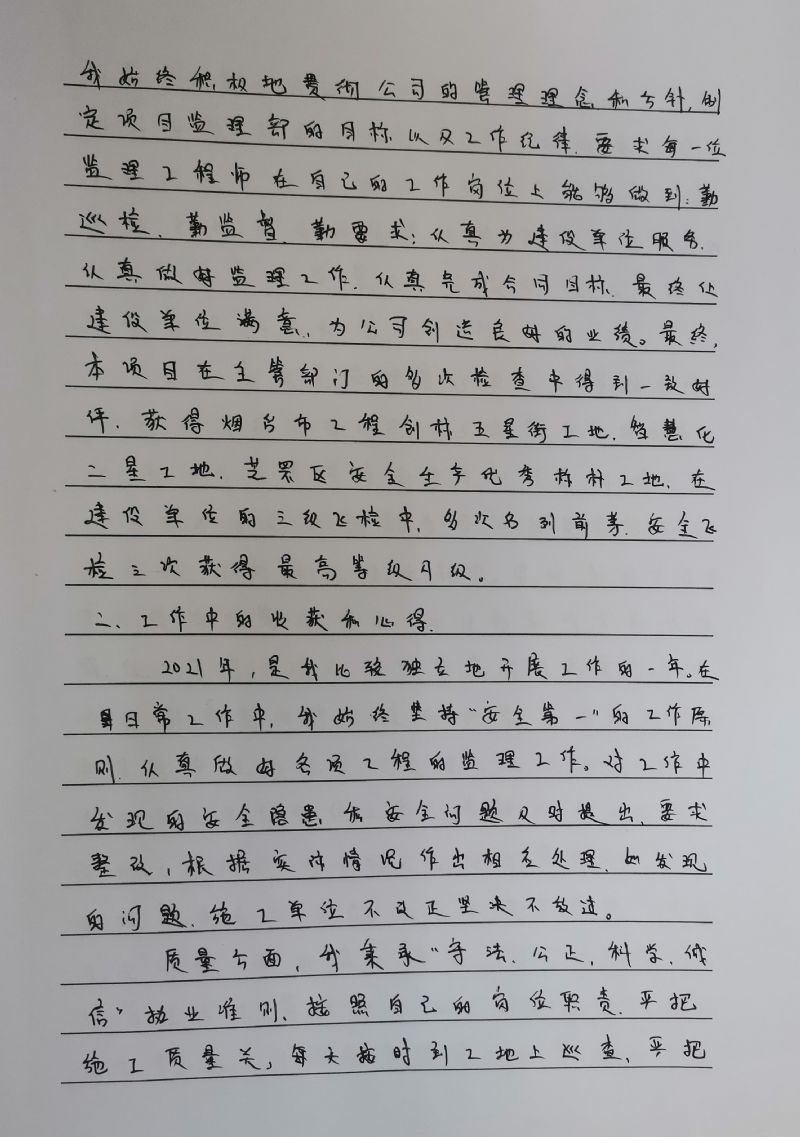 我始终积极地贯彻公司的管理理念和方针,制
定项目监理部的目标以及工作纪律.要求每一位
监理工程师在自己的工作岗位上能够做到:勤
巡检、勤监督、勤要求;认真为建设单位服务.
认真做好监理工作.认真完成合同目标.最终让
建设单位满意.为公司创造良好的业绩。最终,
本项目在主管部门的多次检查中得到一致好
评.获得烟台市工程创标五星街工地.智慧化
二星工地.芝罘区安全生产优秀标杆工地.在
建设单位的三级飞检中,多次名列前茅.安全飞
检三次获得最高等级A级。
二、工作中的收获和心得.
2021年,是我比较独立地开展工作的一年。在
日常工作中,我始终坚持"安全第一"的工作原
则.认真做好各项工程的监理工作。对工作中
发现的安全隐患和安全问题及时提出.要求
整改,根据实际情况作出相应处理.如发现
的问题.施工单位不改正坚决不放过。
质量方面,我秉承"守法.公正,科学.诚
信"执业准则、按照自己的岗位职责.严把
施工质量关,每天按时到工地上巡查、严把